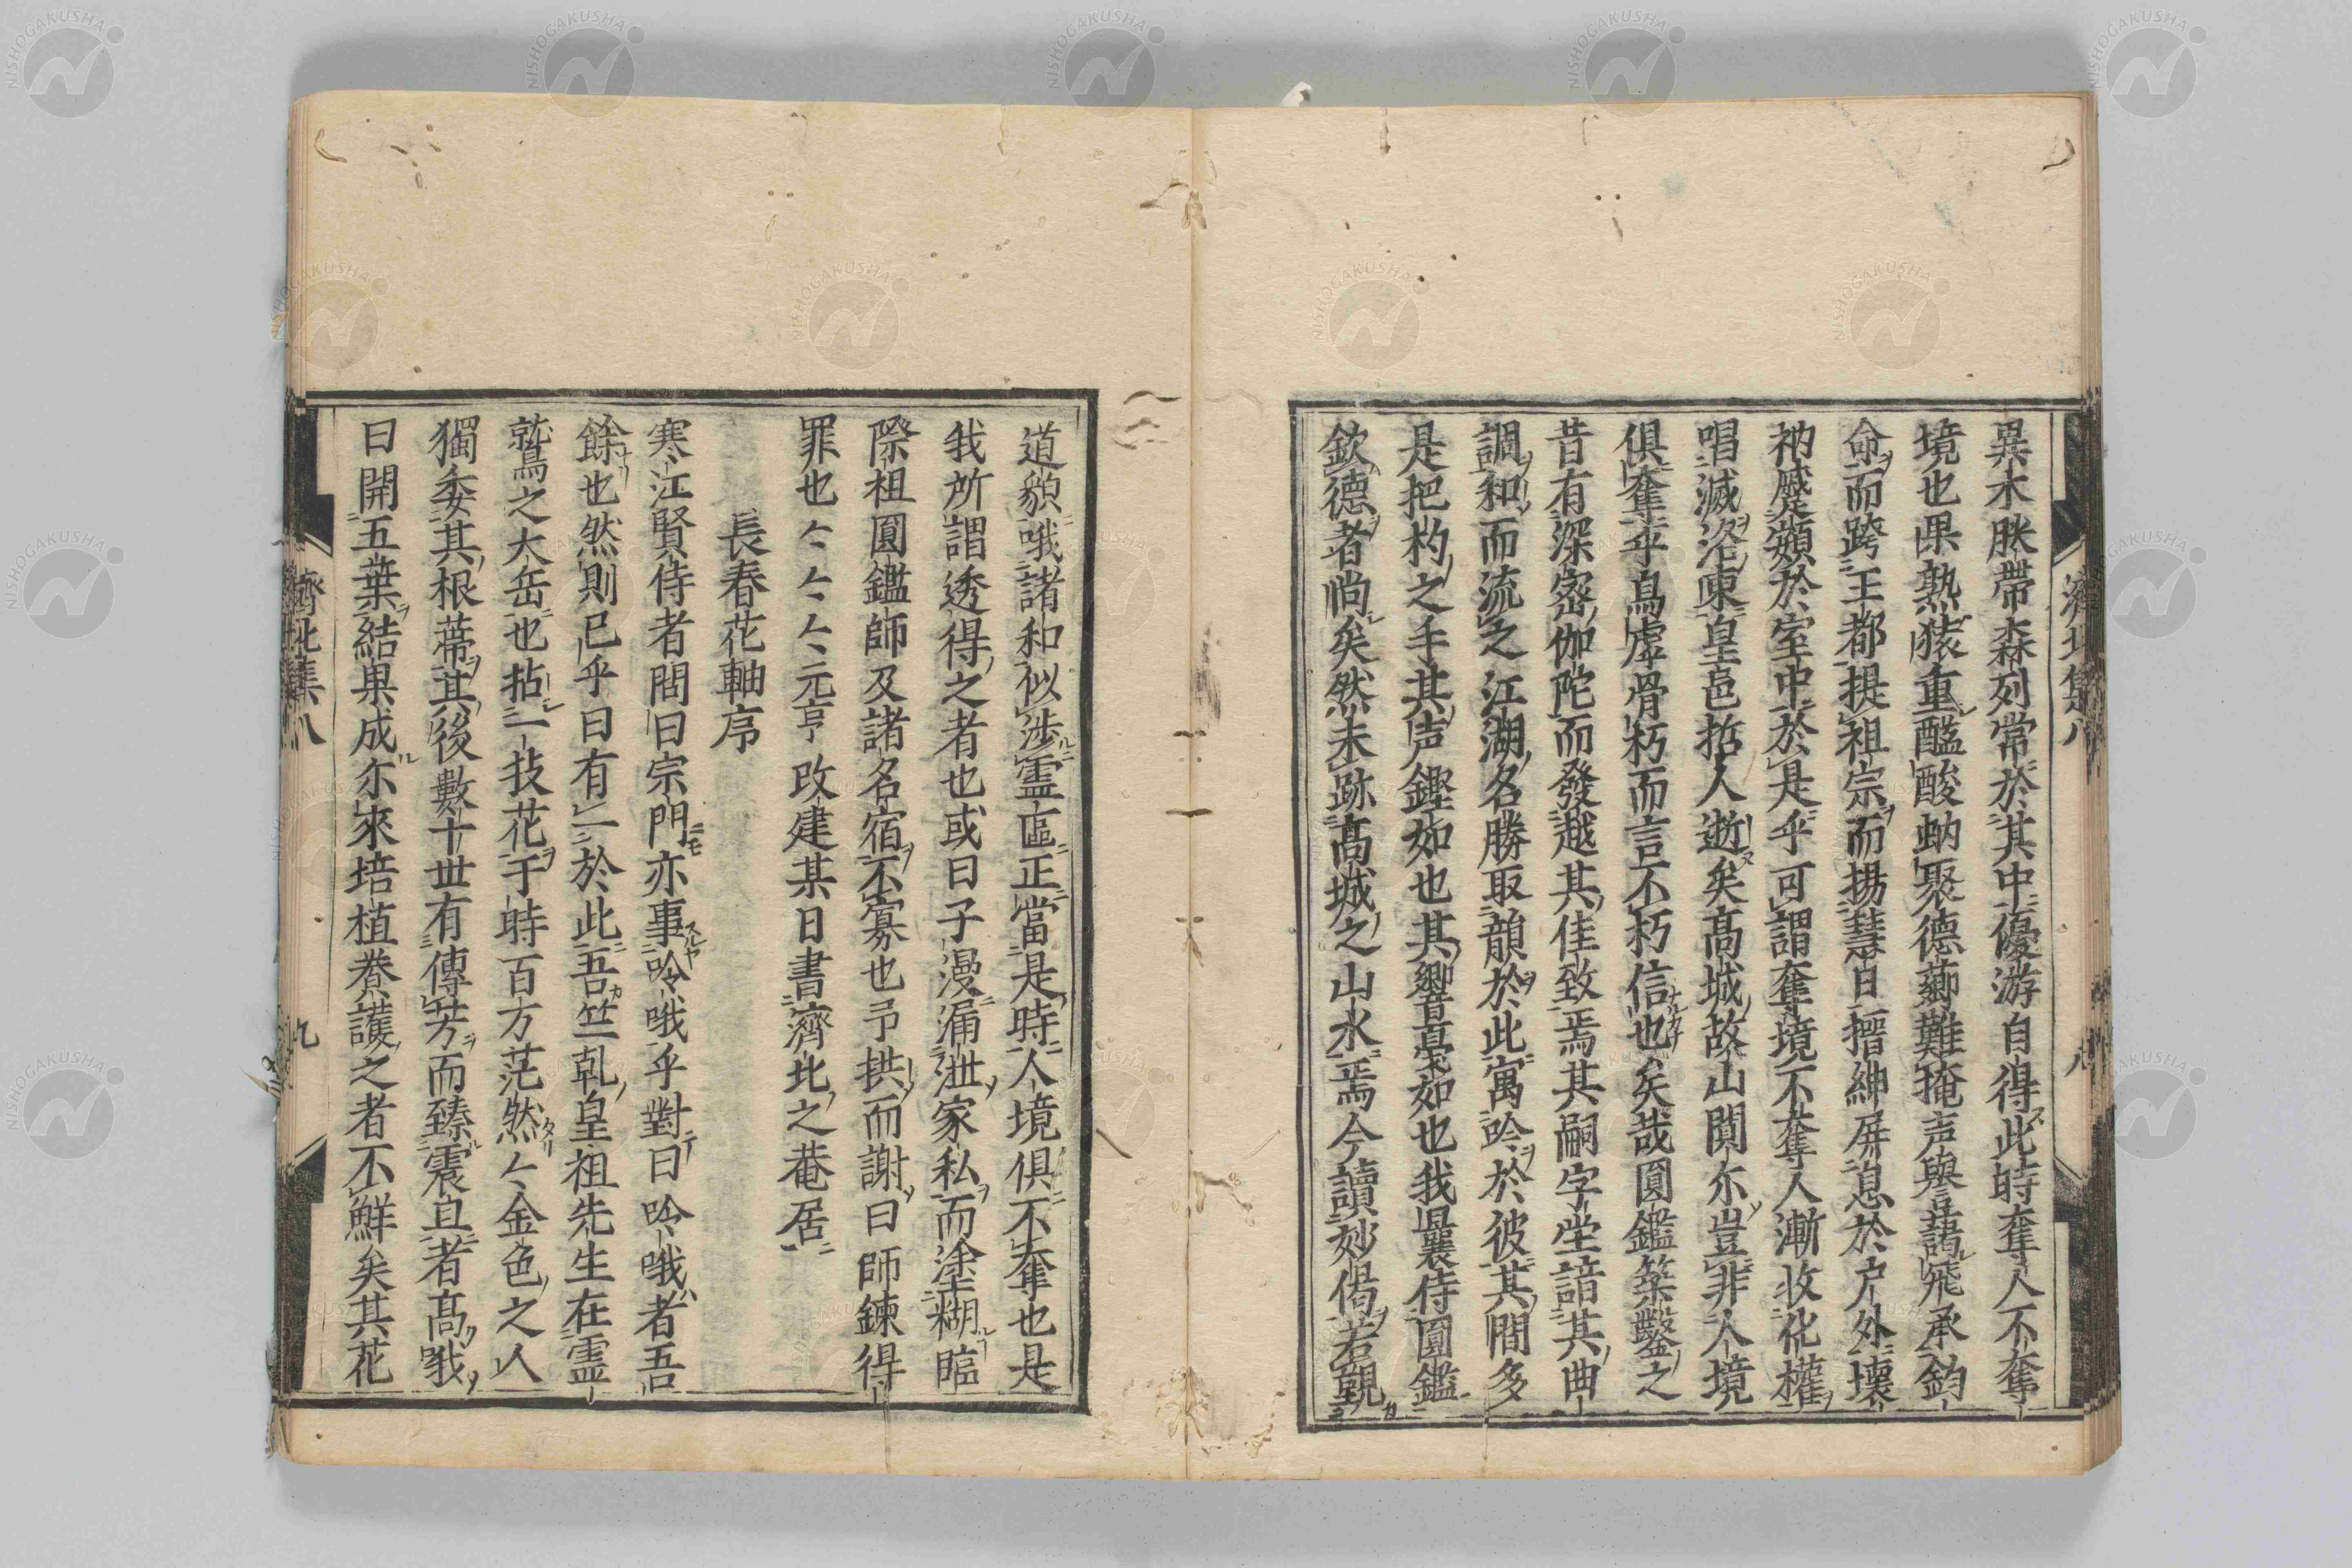 異木牀帶森列常於其中優游自得此時奪人不奪
境也果熟猿重醯酸蚋聚德薌難掩声譽藹飛承鈞
命而跨王都提祖宗而揚慧日搢紳屏息於戶外壞
衲蹙頞於室中於是乎可謂奪境不奪人漸收化權
唱滅洛東皇邑哲人逝矣高城故山閴尓豈非人境
俱奪乎鳥虚骨朽而言不朽信也矣哉圓鑑築鑿之
昔有深密伽陀而發越其佳致焉其嗣字堂諳其曲
調和而流之江湖名勝取韻於此寓吟於彼其間多
是把杓之手其声鏗如也其響戛如也我曩侍圓鑑
欽德者尚矣然未跡高城之山水焉今讀玅偈若覿
濟北集八
八
道貌哦諸和似涉霊區正當是時人境俱不奪也是
我所謂透得之者也或曰子漫漏泄家私而塗糊臨
際祖圓鑑師及諸名宿不寡也予拱而謝曰師鍊得
罪也〻〻〻元亨改建某日書濟北之菴居
長春花軸序
寒江賢侍者問曰宗門亦事吟哦乎對曰吟哦者吾
餘也然則已乎曰有一於此吾竺乹皇祖先生在霊
鷲之大岳也拈一枝花于時百方茫然〻金色之人
獨委其根蔕其後數十世有傳芳而臻震旦者高哦
曰開五葉結果成尓來培植養護之者不鮮矣其花
濟北集八
九
NISHOGAKUSHA